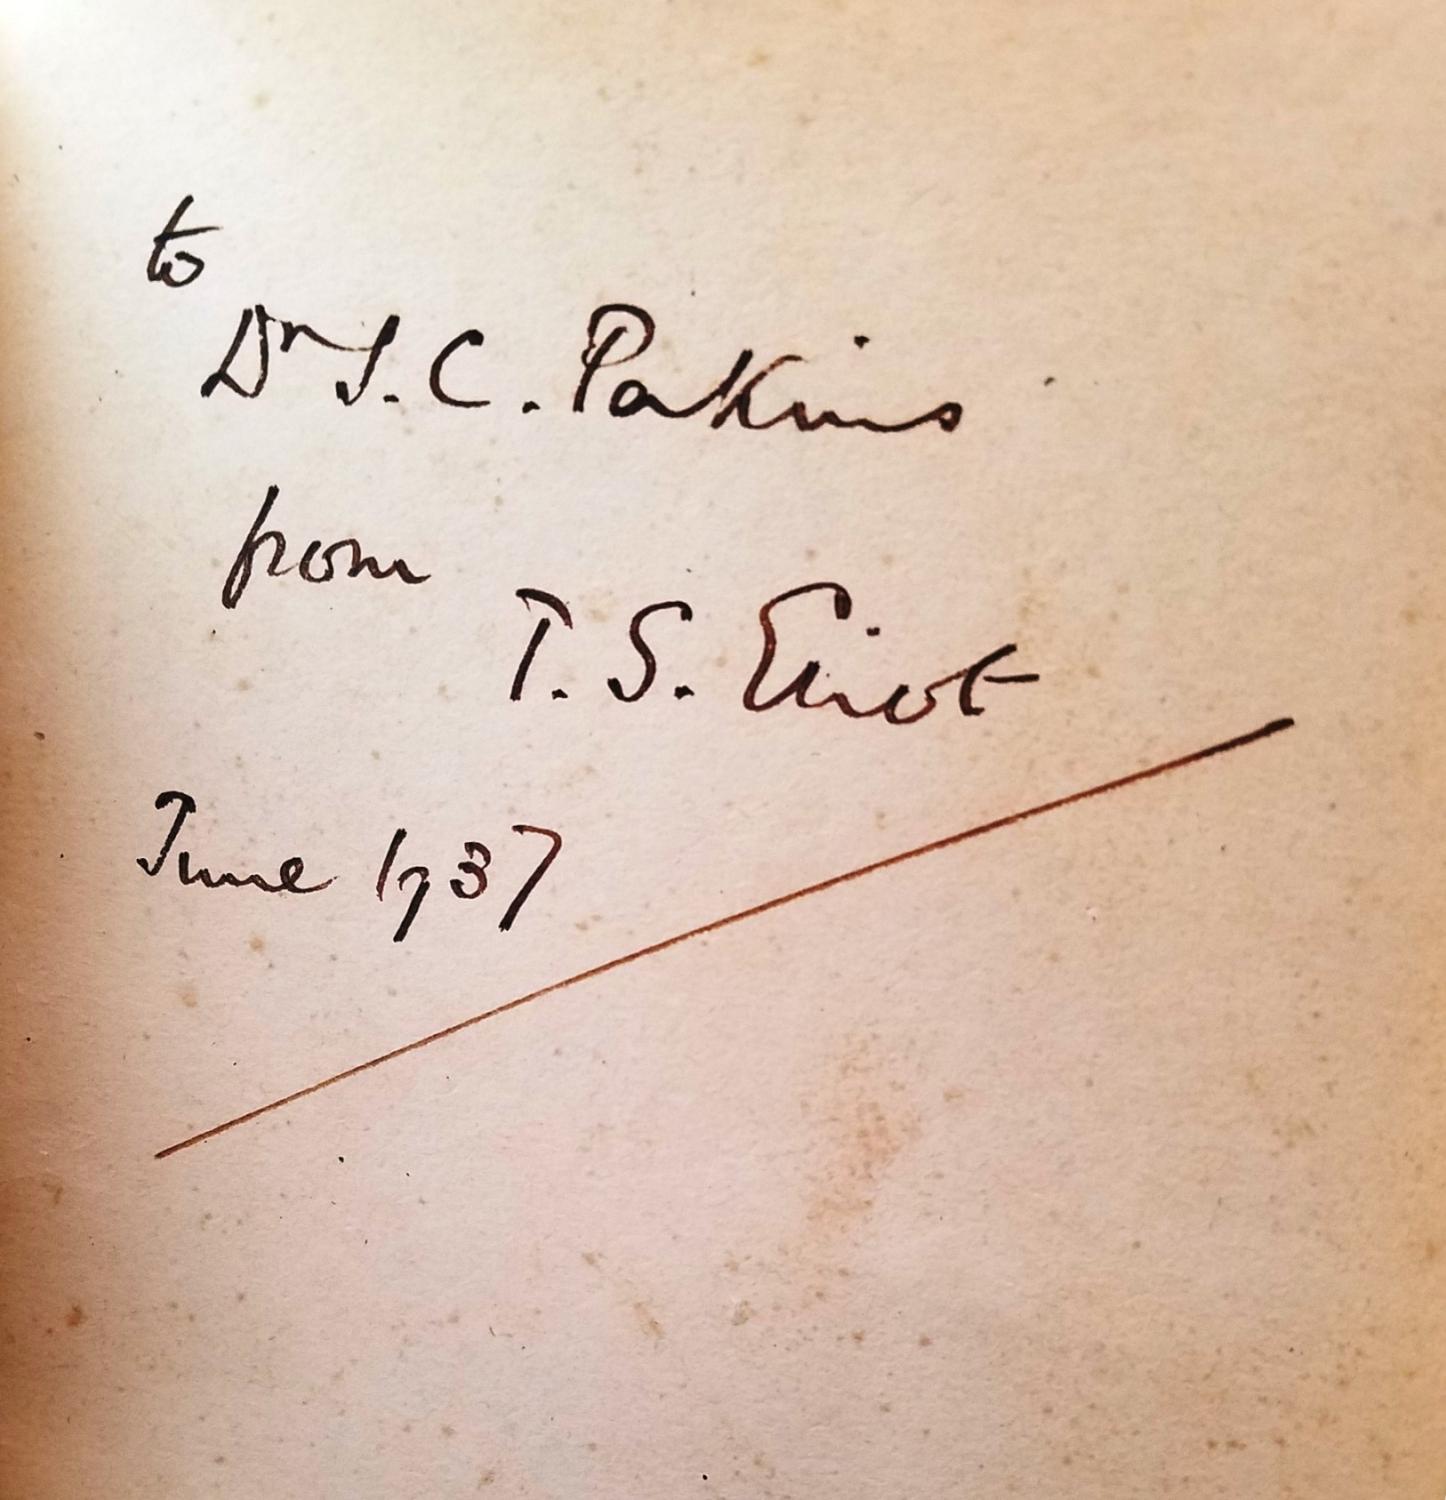 to
Dr J. C. Perkins
from
T. S. Eliot
June 1937